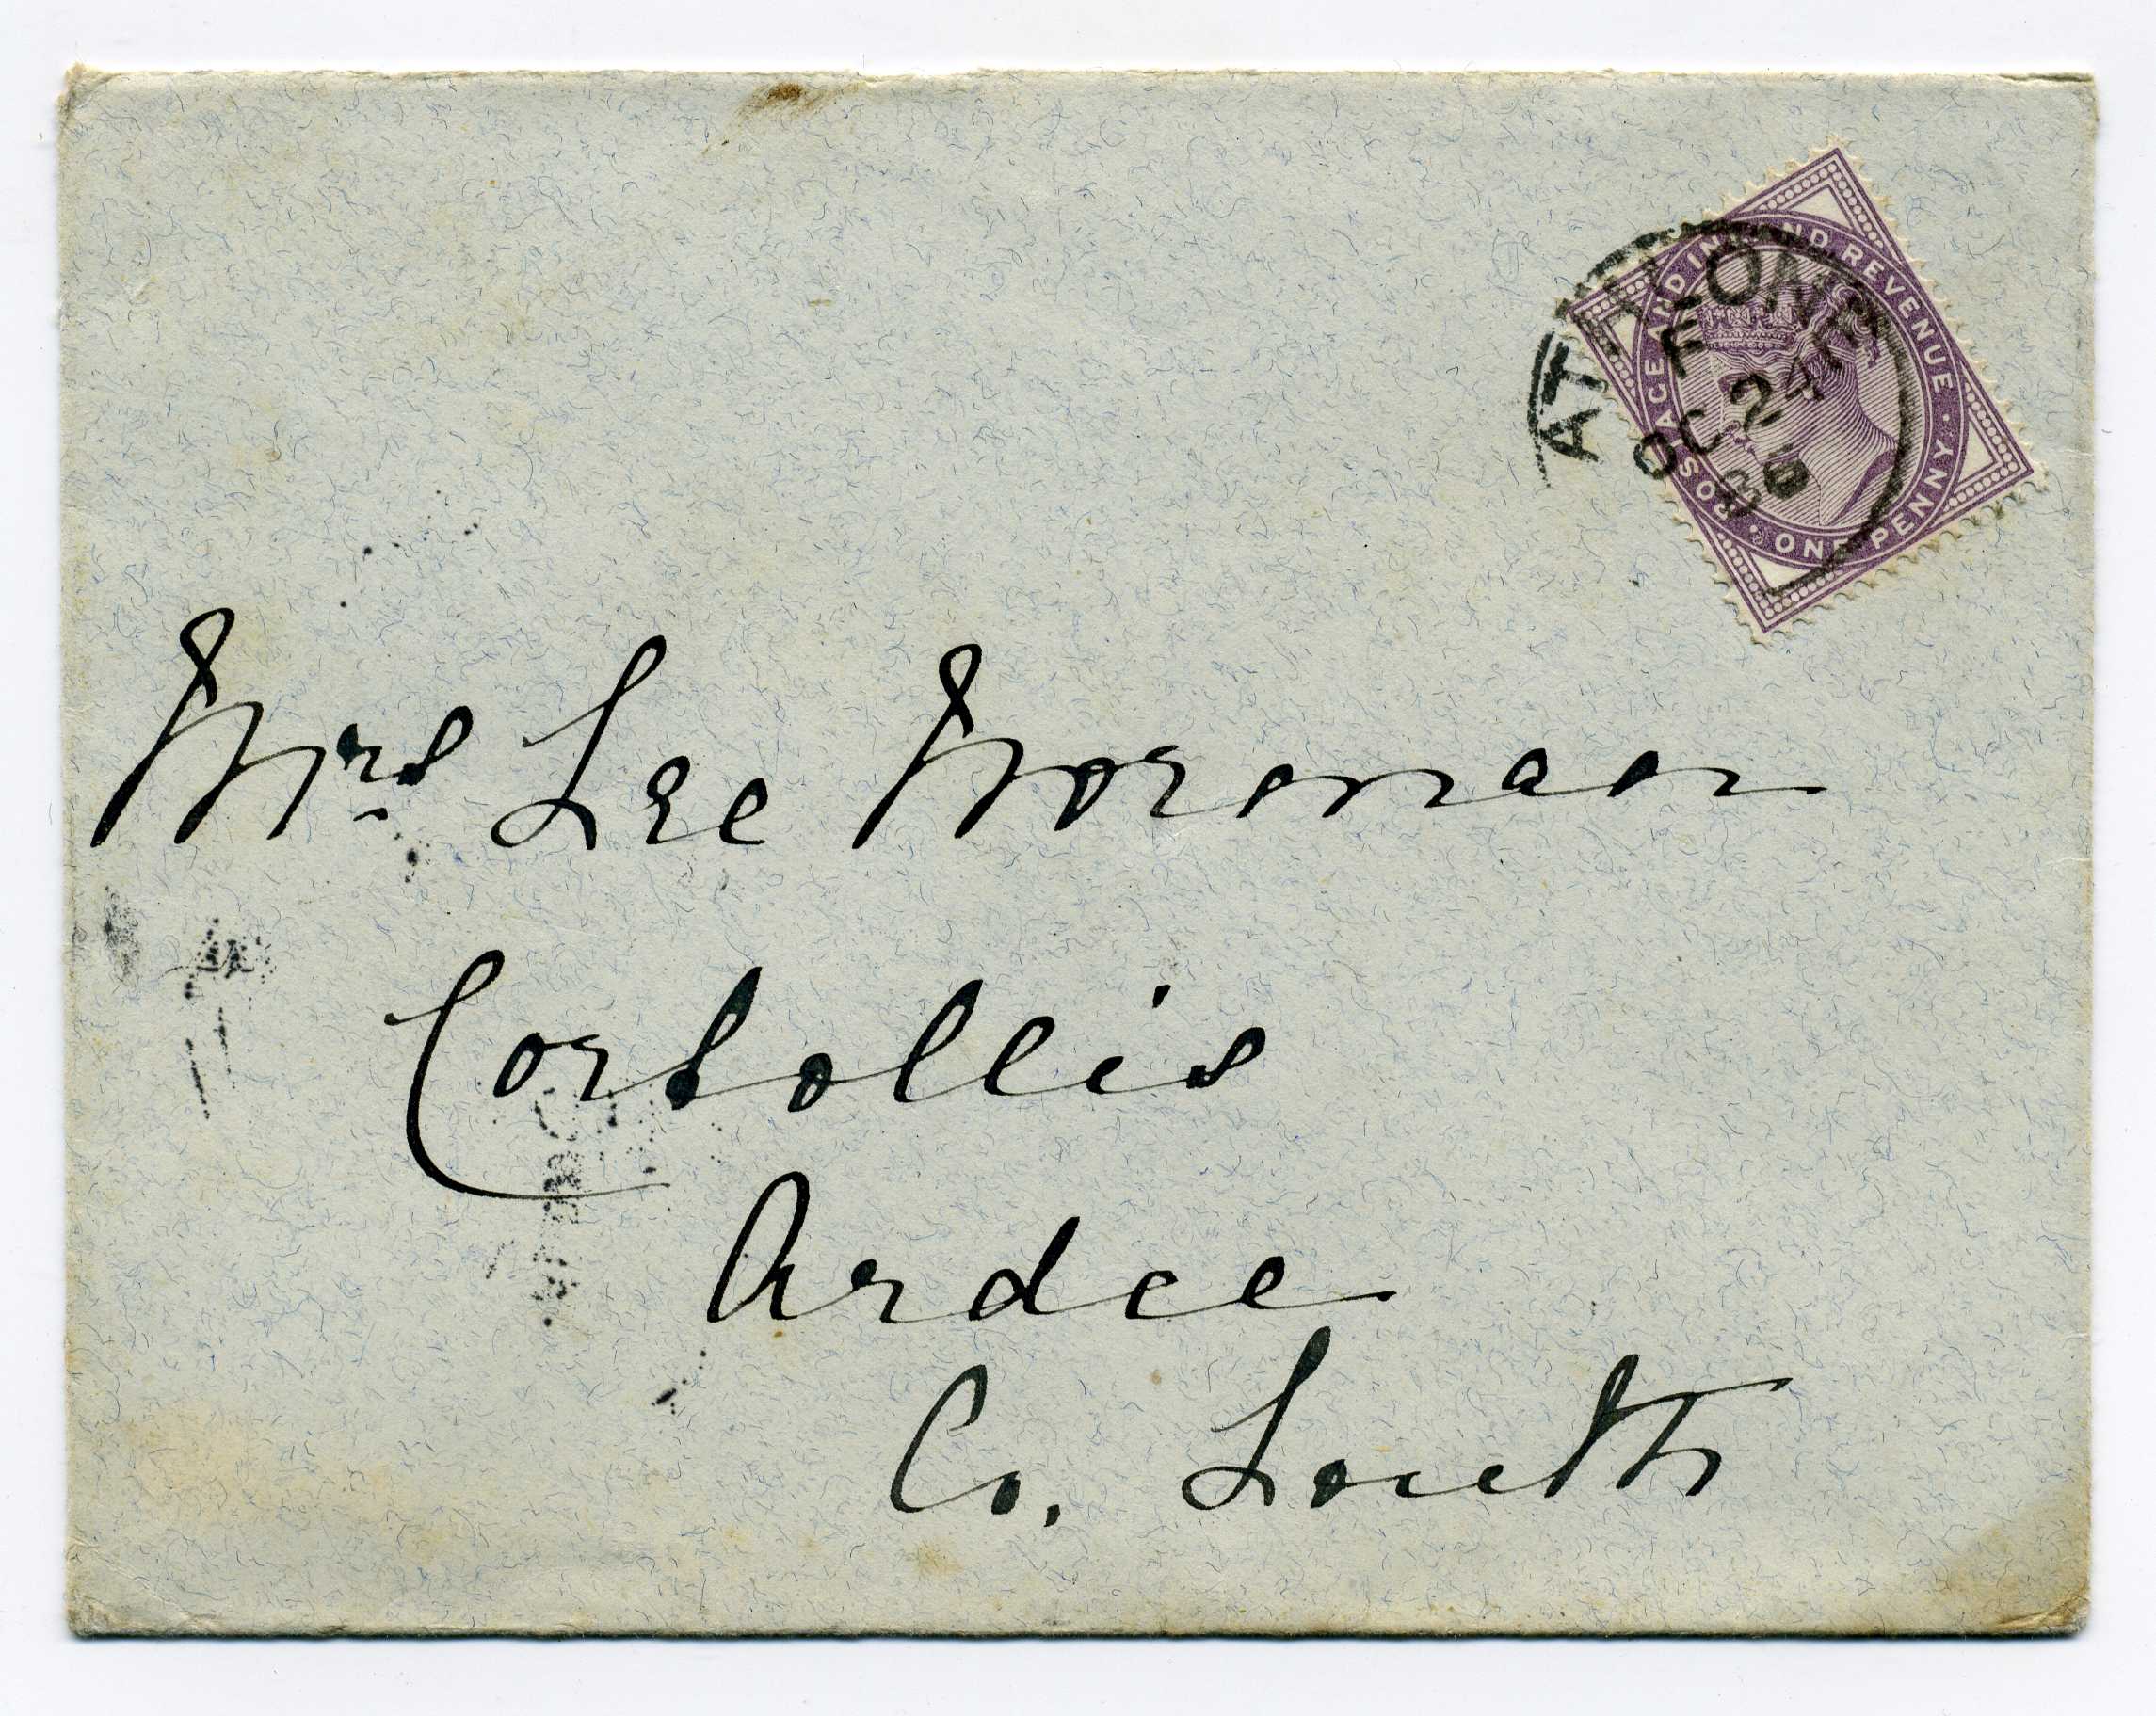 POSTAGE AND INLAND REVENUE · ONE PENNY ·
ATHLONE
E
OC 24
Mrs Lee Norman
Corbollis
Ardee
Co. Louth